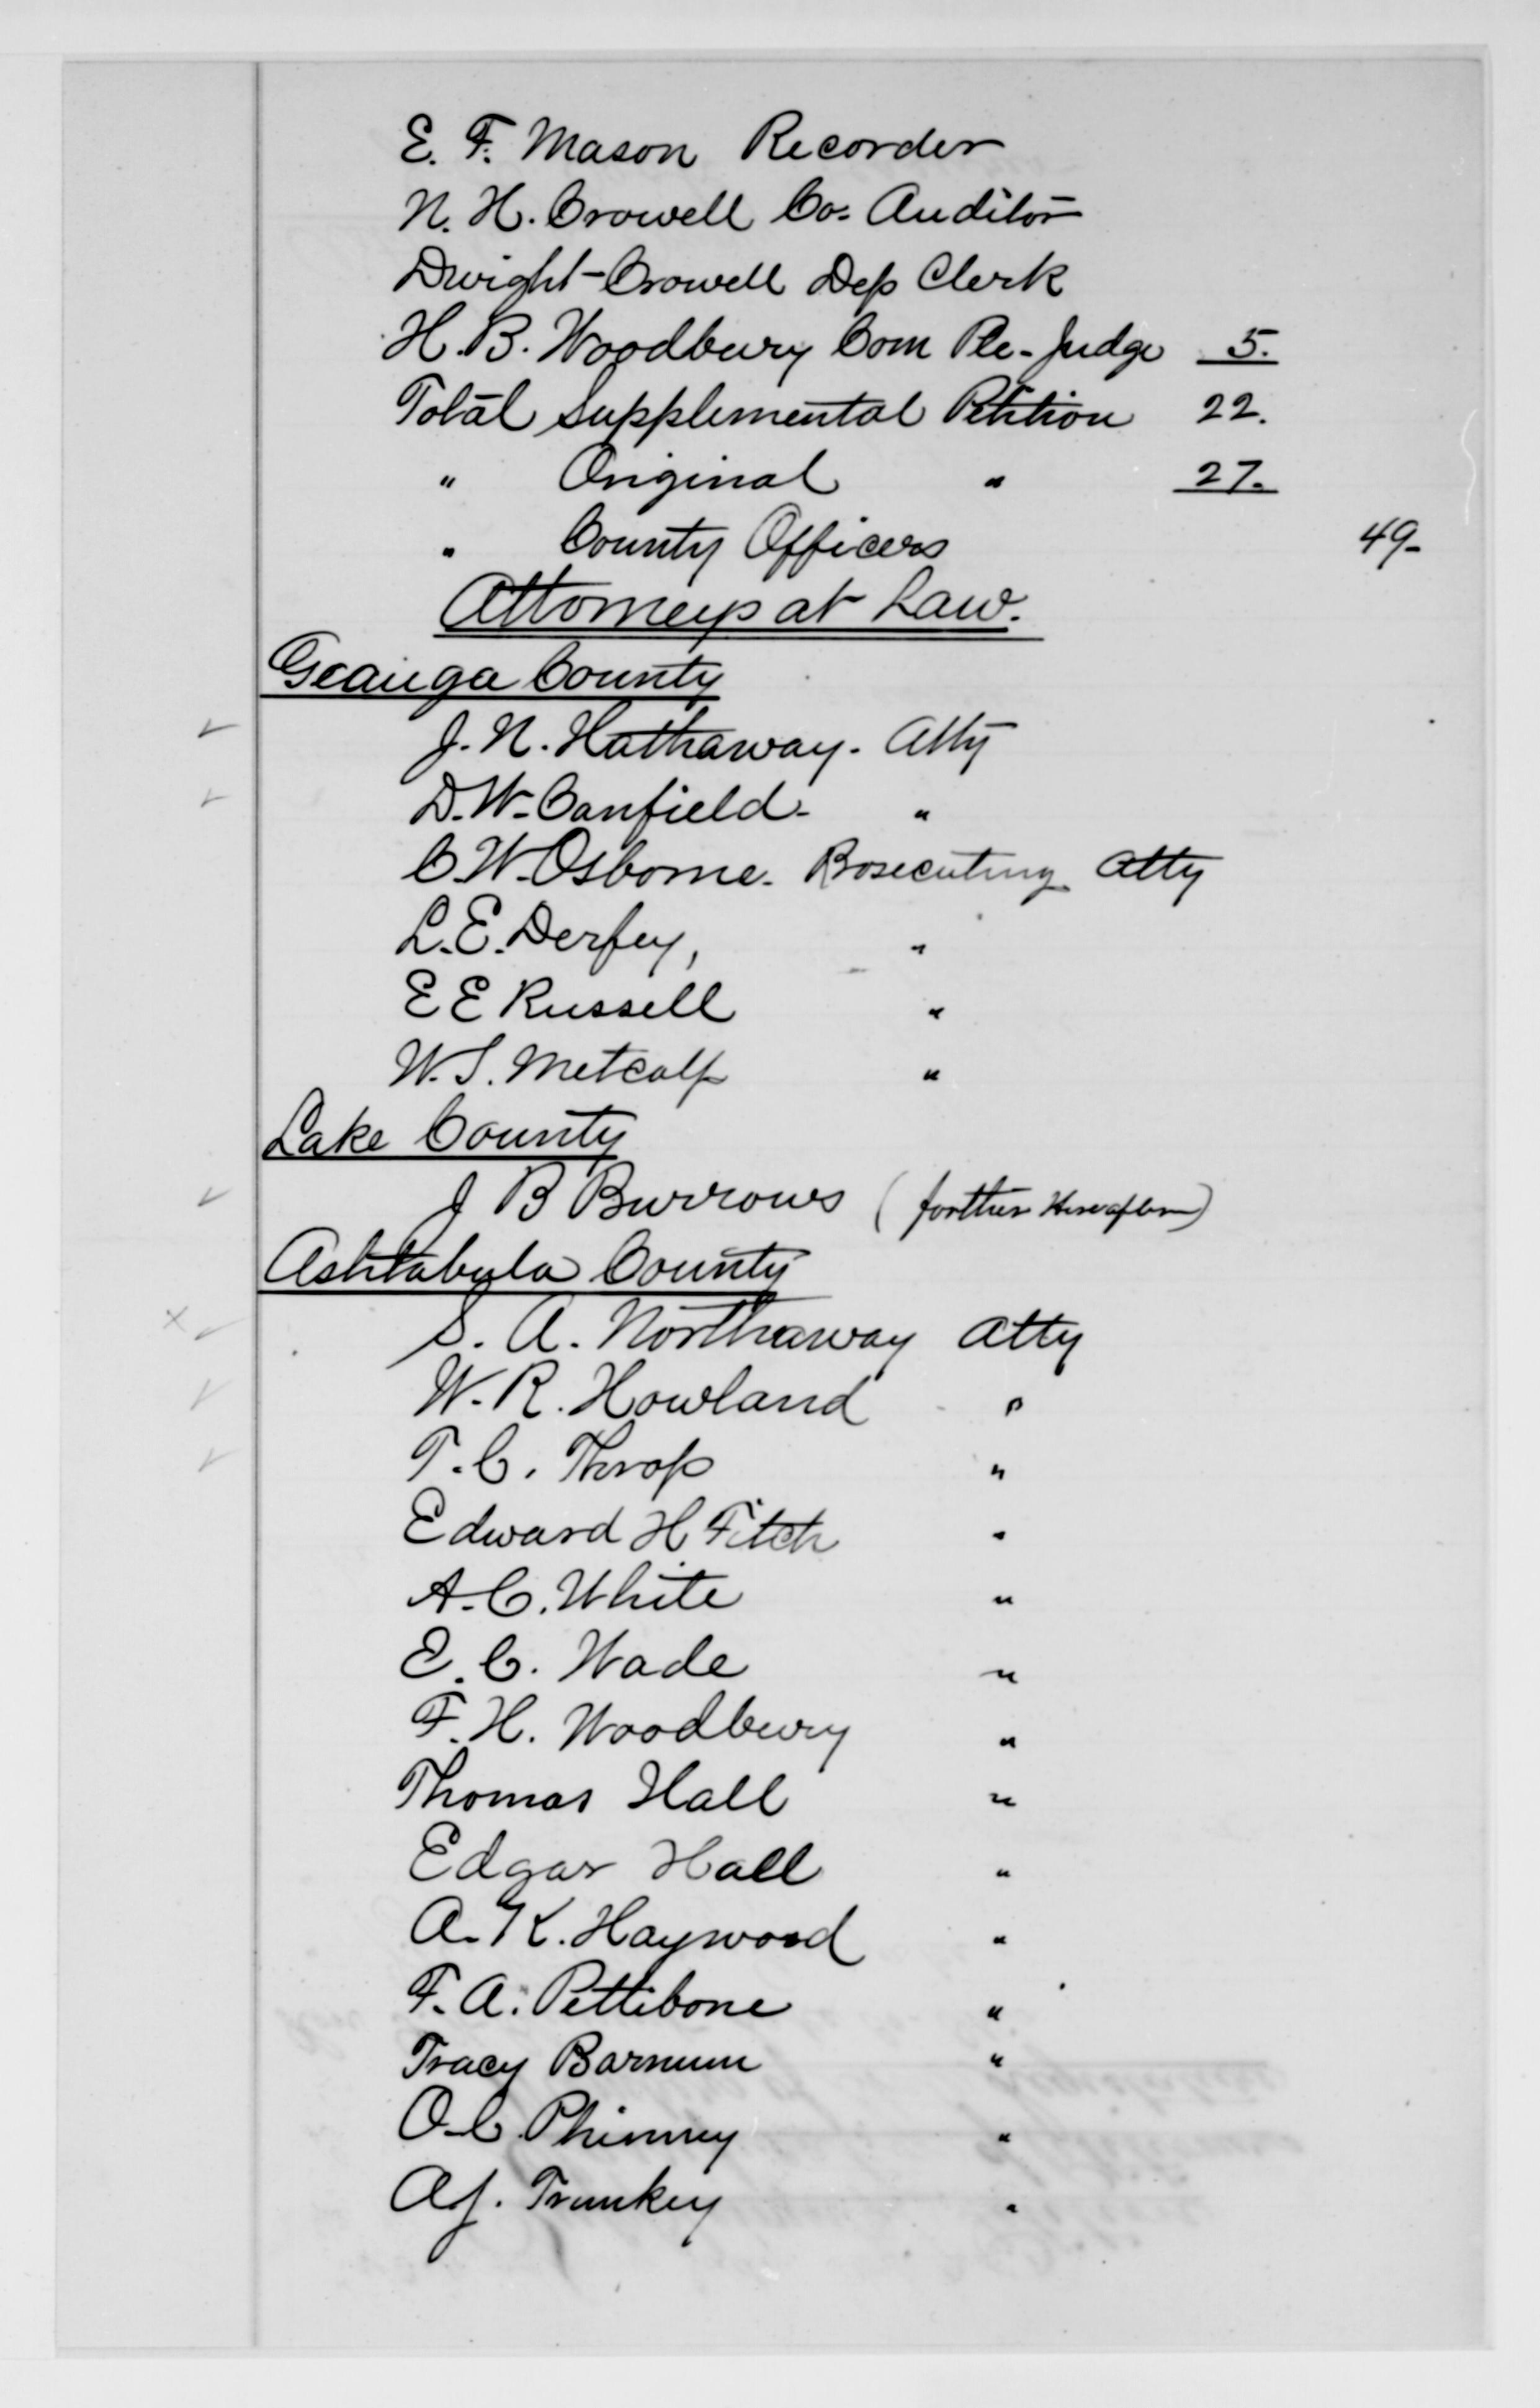 E. F. Mason Recorder
N. H. Crowell Co. Auditor
Dwight Crowell Dep Clerk
H. B. Woodbury Com Ple. Judge 5.
Total Supplemental Petition 22.
" Original " 27.
" County Officers 49-
Attorneys at Law.
Geauga County
✓ J. N. Hathaway. Atty
✓ D. W. Canfield. "
C. W. Osborne. Prosecuting Atty
L. E. Derfey, "
E E Russell "
W. S. Metcalf "
Lake County
✓ J B Burrows (further Hereafter)
Ashtabula County
x ✓ S. A. Northaway Atty
✓ W. R. Howland "
✓ T. C. Throp "
Edward H Fitch "
A. C. White "
E. C. Wade "
F. H. Woodbury "
Thomas Hall "
Edgar Hall "
A. K. Haywood "
F. A. Pettibone "
Tracy Barnum "
O. C. Phinney "
A J. Trunkey "